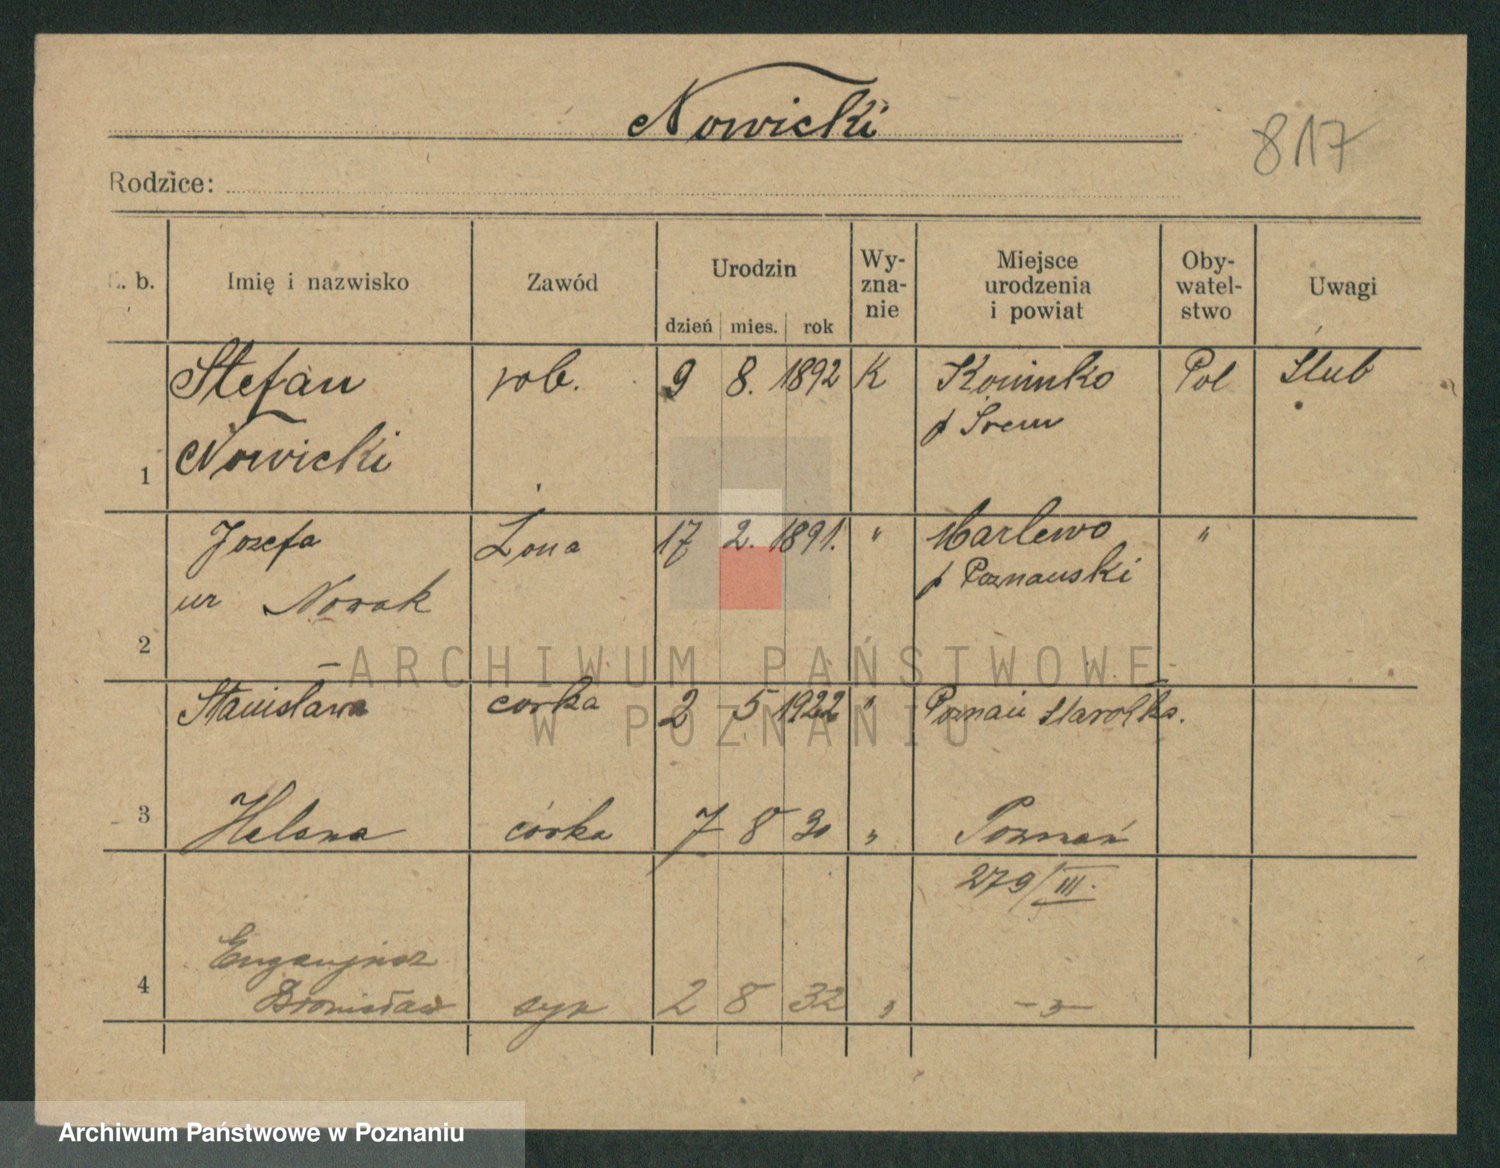 Nowicki
817
Rodzice:
L. b.
Imię i nazwisko
Zawód
Urodzin
dzień mies. rok
Wy-
zna-
nie
Miejsce
urodzenia
i powiat
Oby-
watel-
stwo
Uwagi
1
Stefan
Nowicki
rob.
9 8. 1892
K
Kominko
p Śrem
Pol
Ślub
2
Józefa
ur Nowak
Żona
17 2. 1891.
"
Marlewo
p Poznański
"
Stanisława
corka
2 5 1922
"
Poznań Starołka.
3
Helena
córka
7 8 30
"
Poznań
279/III.
4
Eugenjusz
Bronisław
syn
2 8 32
"
-"-
ARCHIWUM PAŃSTWOWE
W POZNANIU
Archiwum Państwowe w Poznaniu